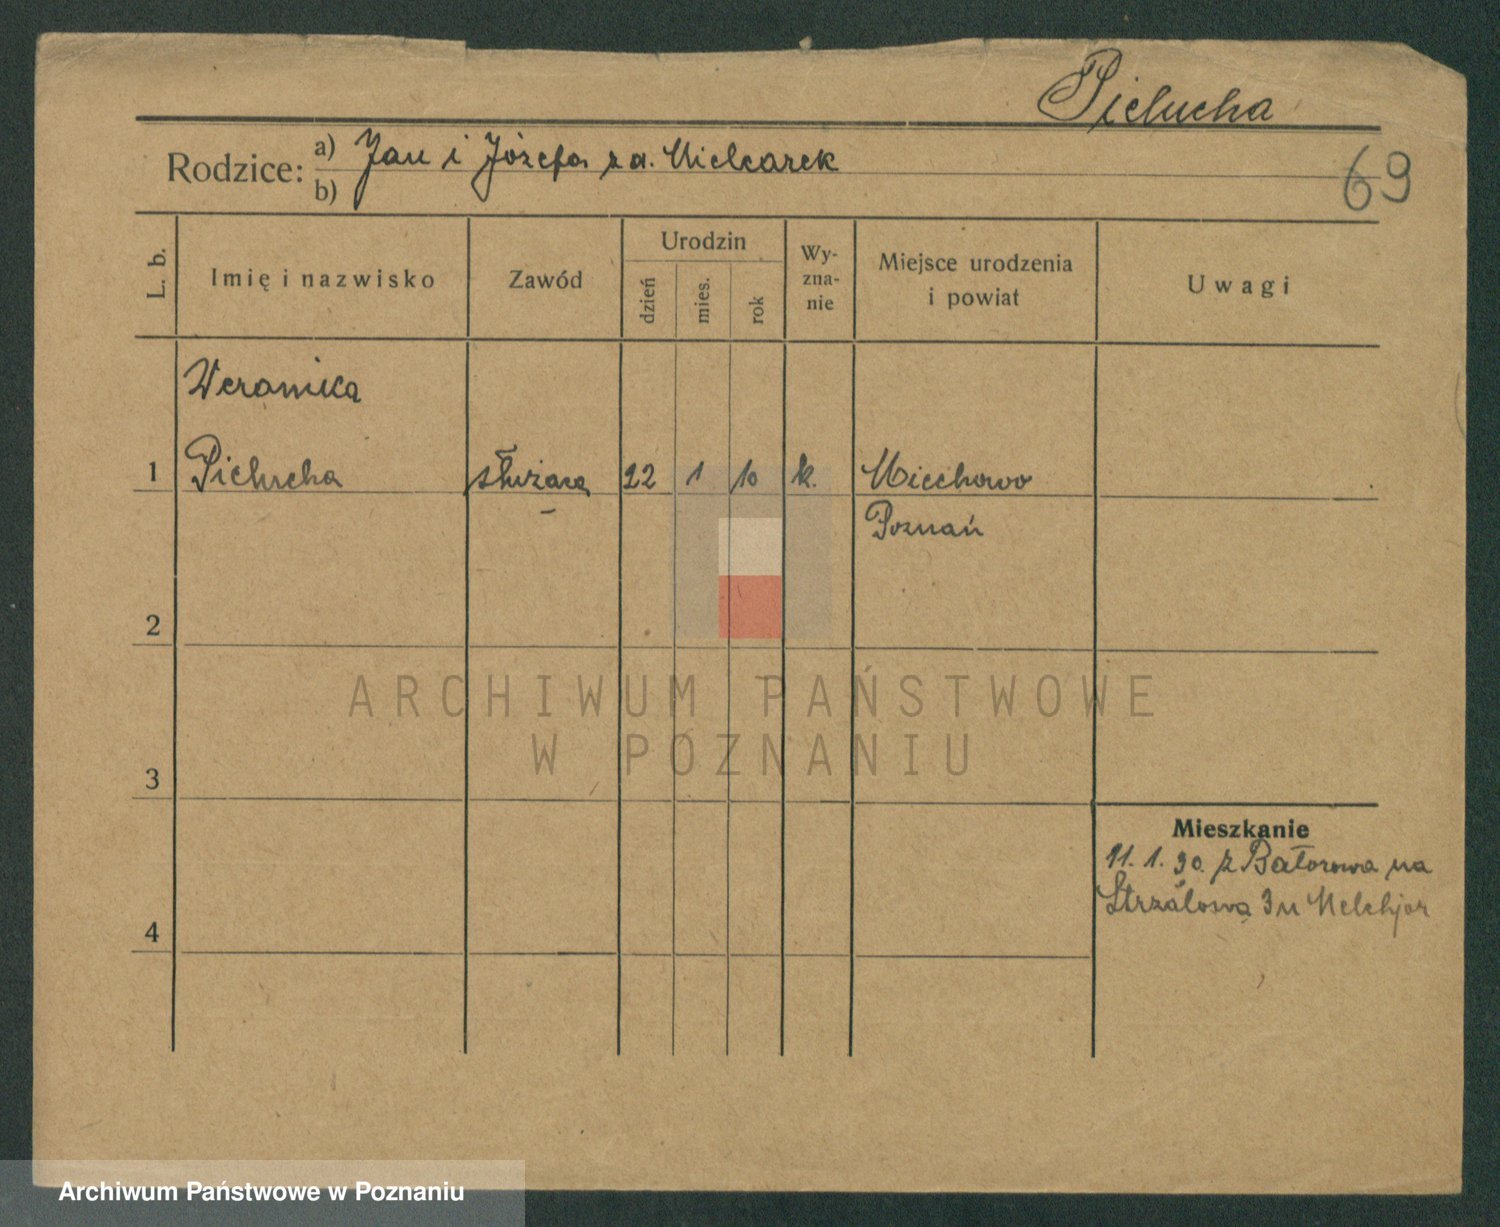 Pielucha
Rodzice: a) Jan i Józefa z d. Mielcarek
b)
69
L. b.
Imię i nazwisko
Zawód
Urodzin
dzień
mies.
rok
Wy-
zna-
nie
Miejsce urodzenia
i powiat
Uwagi
Weronika
1 Pielucha służąca 22 1 10 k. Miechowo
Poznań
2
3
4
Mieszkanie
11. 1. 30. z Batorowa na
Strzałowa 3 u Melchjor
ARCHIWUM PAŃSTWOWE
W POZNANIU
Archiwum Państwowe w Poznaniu